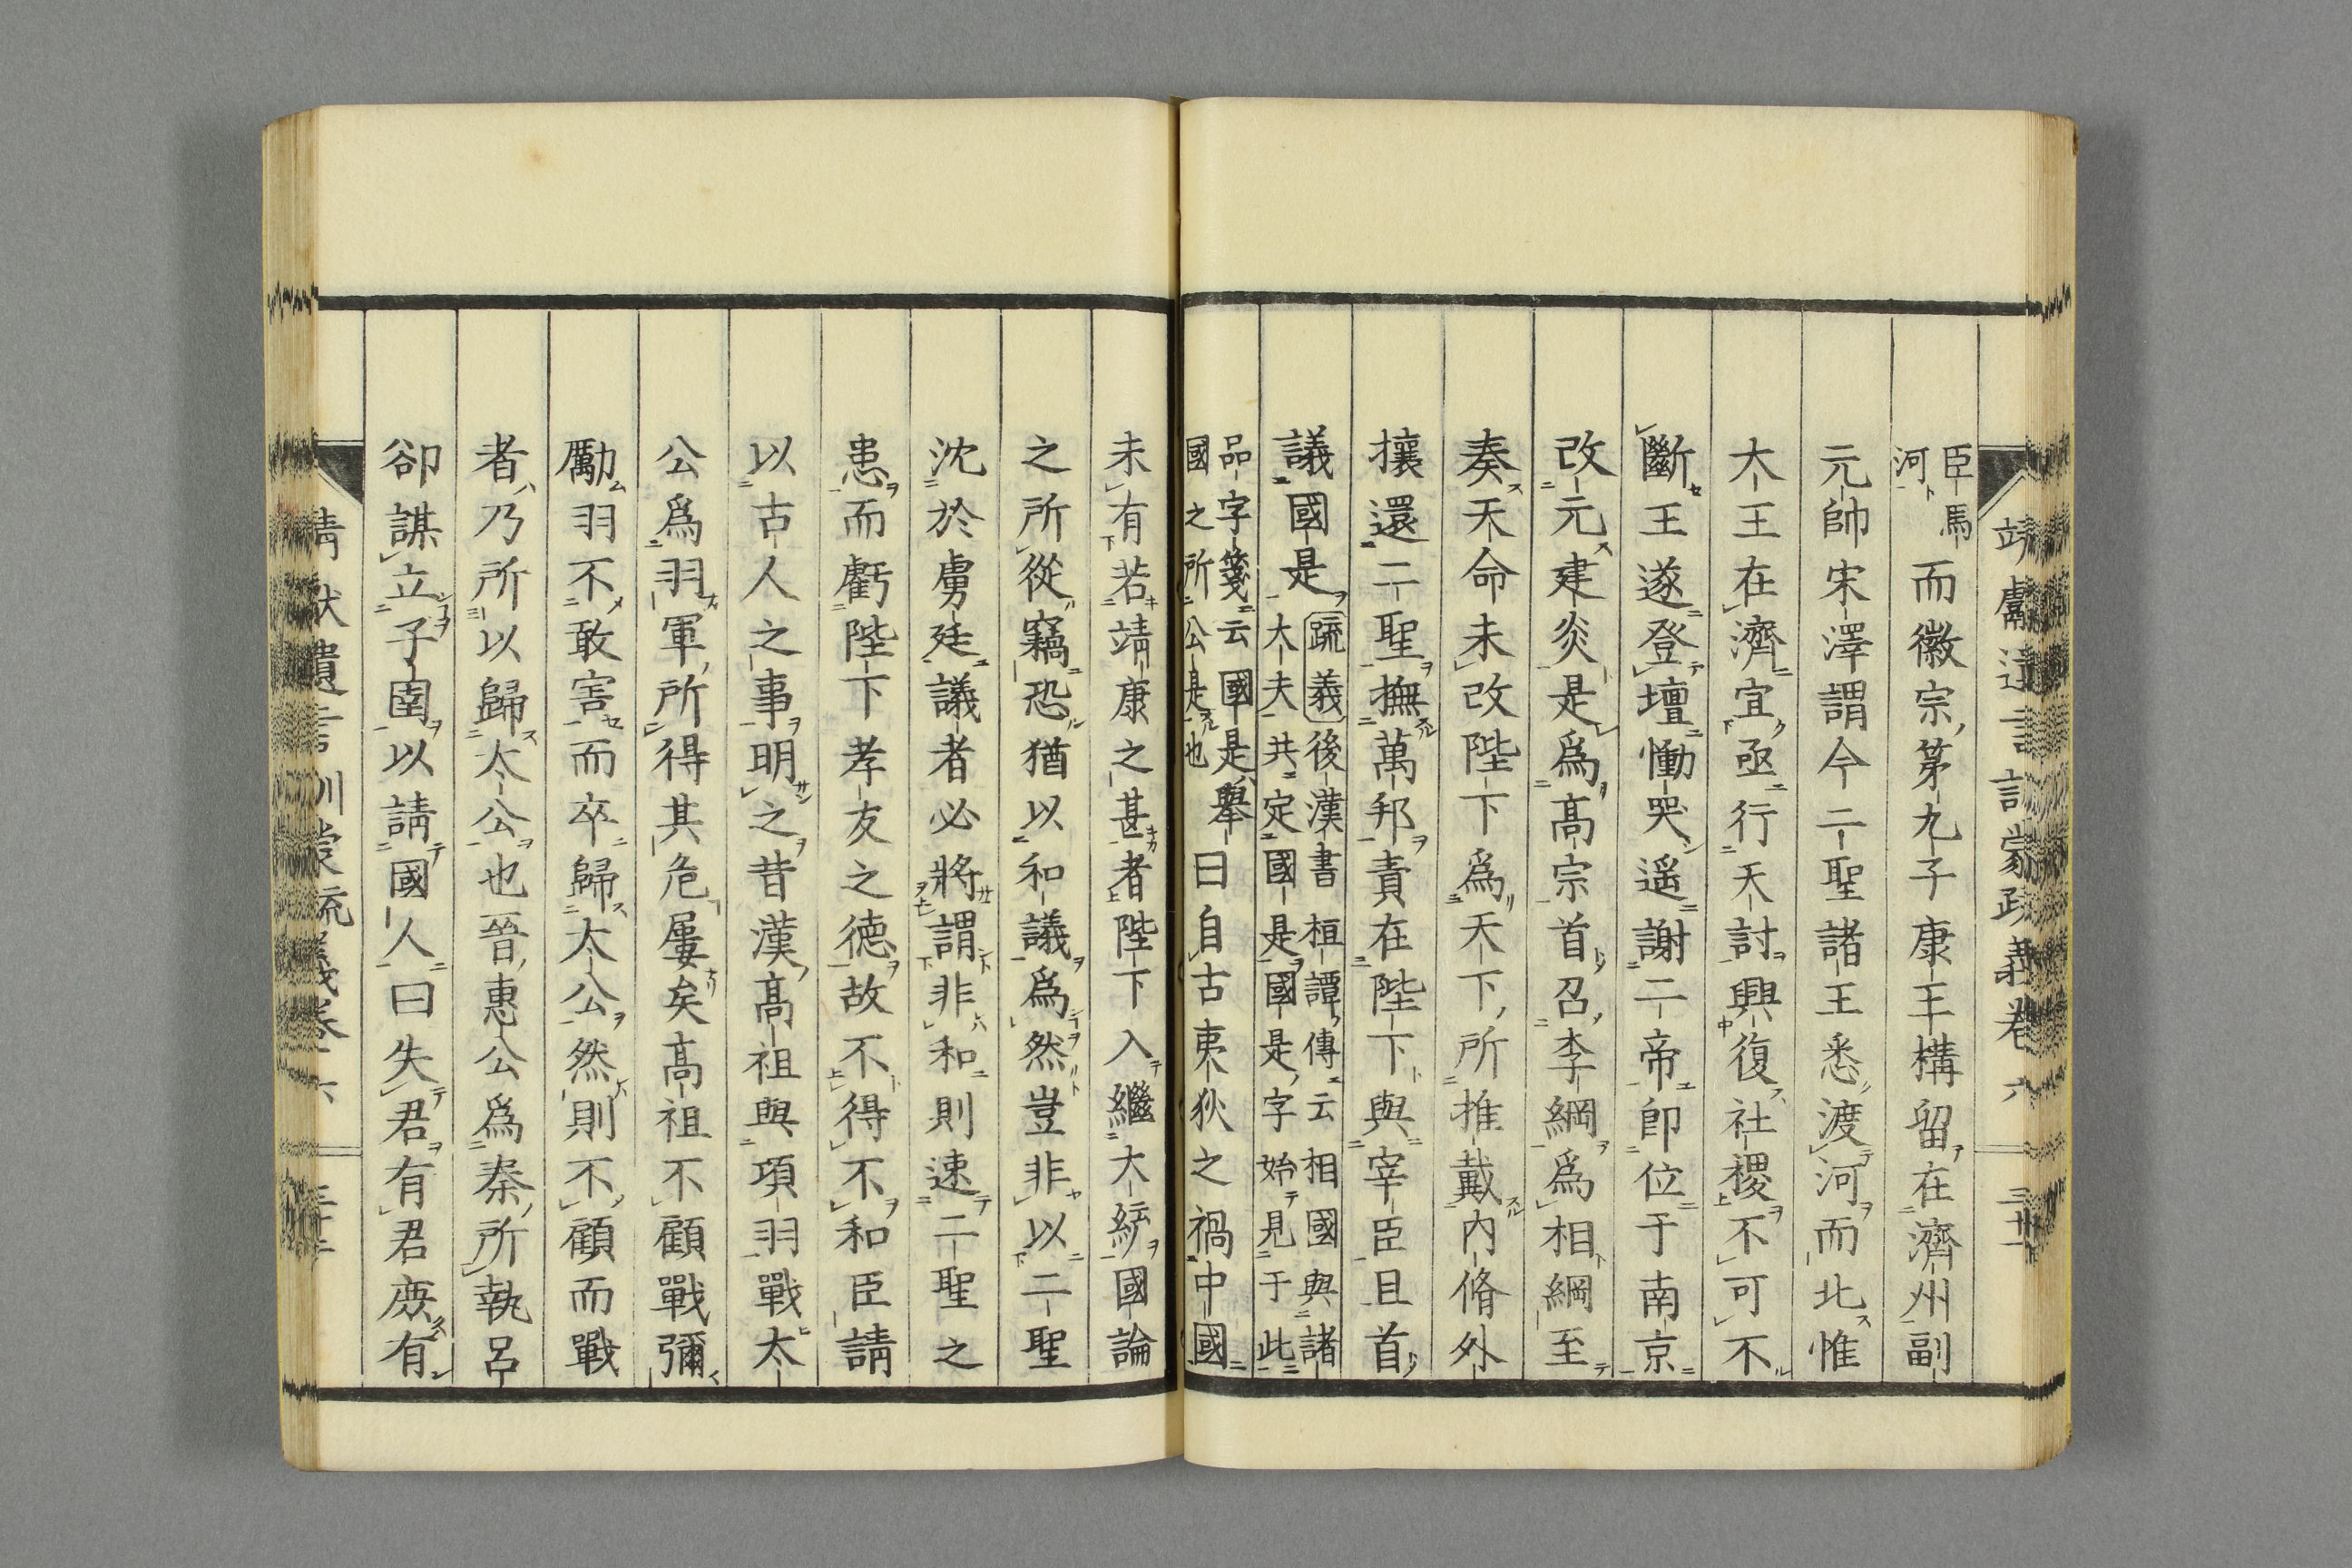 臣馬
河
而徽宗第九子康王構留在濟州副
元帥宋澤謂今二聖諸王悉渡河而北惟
大王在濟宜亟行天討興復社稷不可不
斷王遂登壇慟哭遥謝二帝即位于南京
改元建炎是為高宗首召李綱為相綱至
奏天命未改陛下為天下所推戴内脩外
攘還二聖撫萬邦責在陛下與宰臣且首
議國是
疏義後漢書桓譚傳云相國與諸
大夫共定國是國是字始見于此
品字箋云國是舉
國之所公是也
曰自古夷狄之禍中國
未有若靖康之甚者陛下入繼大統國論
之所從竊恐猶以和議為然豈非以二聖
沈於虜廷議者必將謂非和則速二聖之
患而虧陛下孝友之德故不得不和臣請
以古人之事明之昔漢高祖與項羽戰太
公為羽軍所得其危屢矣高祖不顧戰彌
勵羽不敢害而卒歸太公然則不顧而戰
者乃所以歸太公也晉惠公為秦所執呂
卻謀立子圉以請國人曰失君有君庶有
靖獻遺言訓蒙疏義卷六